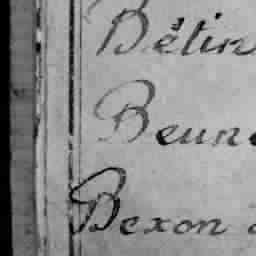 Bétin
Beun
Bexon